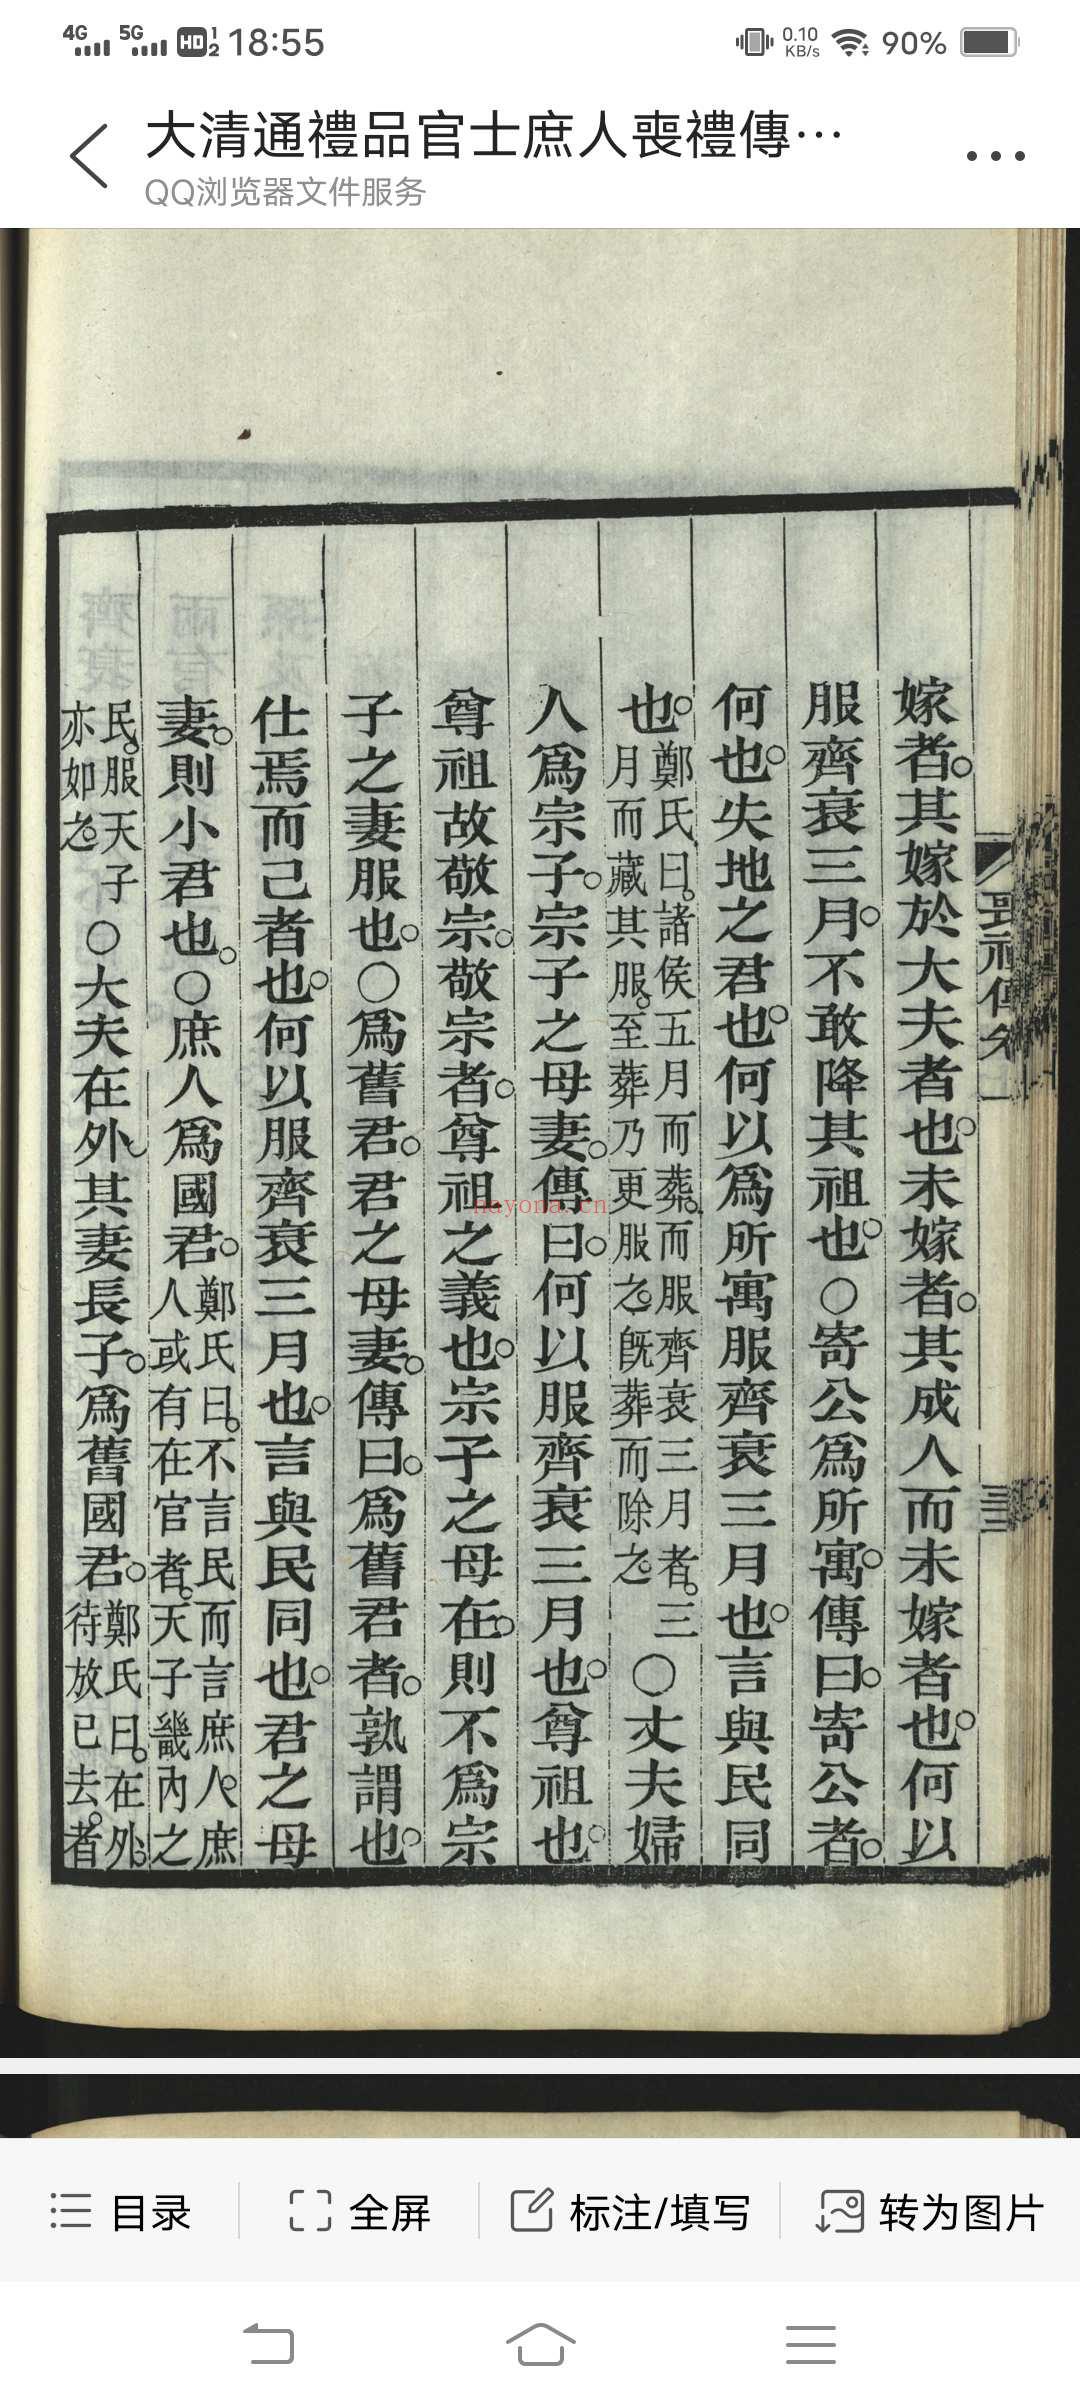 4G 5G HD 1 2 18:55 0.10 KB/s 90%
大清通禮品官士庶人喪禮傳…
QQ浏览器文件服务
嫁者。其嫁於大夫者也。未嫁者。其成人而未嫁者也。何以
服齊衰三月。不敢降其祖也。○寄公爲所寓。傳曰。寄公者。
何也。失地之君也。何以爲所寓服齊衰三月也。言與民同
也。鄭氏曰。諸侯五月而葬。而服齊衰三月者。三
月而藏其服。至葬乃更服之。旣葬而除之。
○丈夫婦
人爲宗子。宗子之母妻。傳曰。何以服齊衰三月也。尊祖也。
尊祖故敬宗。敬宗者。尊祖之義也。宗子之母在。則不爲宗
子之妻服也。○爲舊君。君之母妻。傳曰。爲舊君者。孰謂也。
仕焉而己者也。何以服齊衰三月也。言與民同也。君之母
妻。則小君也。○庶人爲國君。
鄭氏曰。不言民而言庶人。庶
人或有在官者。天子畿內之
民。服天子
亦如之。
○大夫在外。其妻長子。爲舊國君。
鄭氏曰。在外。
待放已去。者
喪禮傳
三
hayona.cn
目录
全屏
标注/填写
转为图片